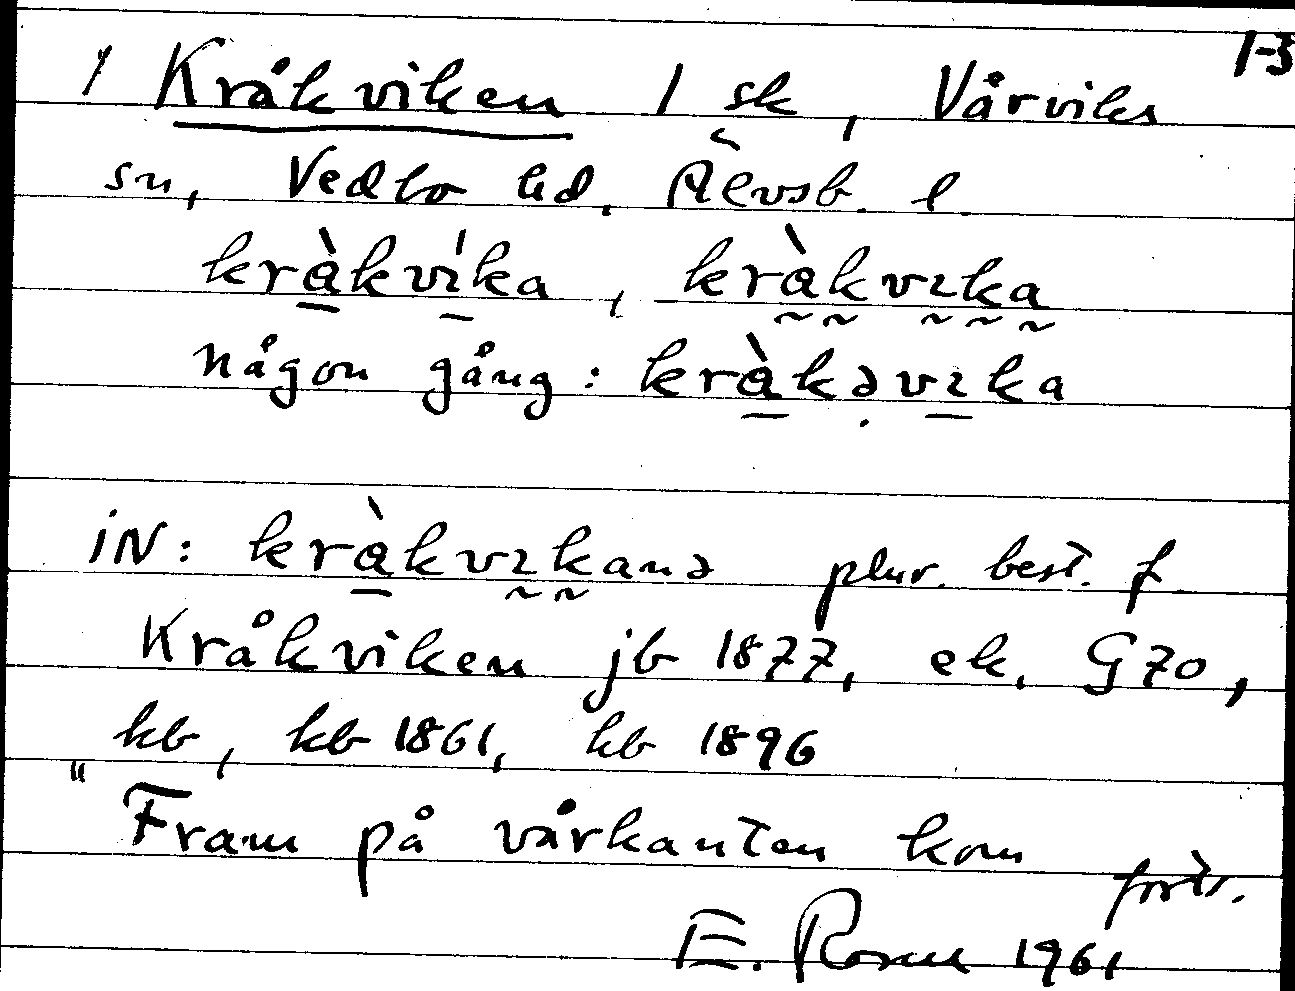 1-3
1 Kråkviken 1 sk, Vårviks
sn, Vedbo hd, Älvsb. l
kràkvíka, kràkvıka
någon gång: kràkəvıka
iN: kràkvıkanə plur. best. f
Kråkviken jb 1877, ek, G70,
kb, kb 1861, hb 1896
"Fram på vårkanten kom
forts.
E. Rosell 1961